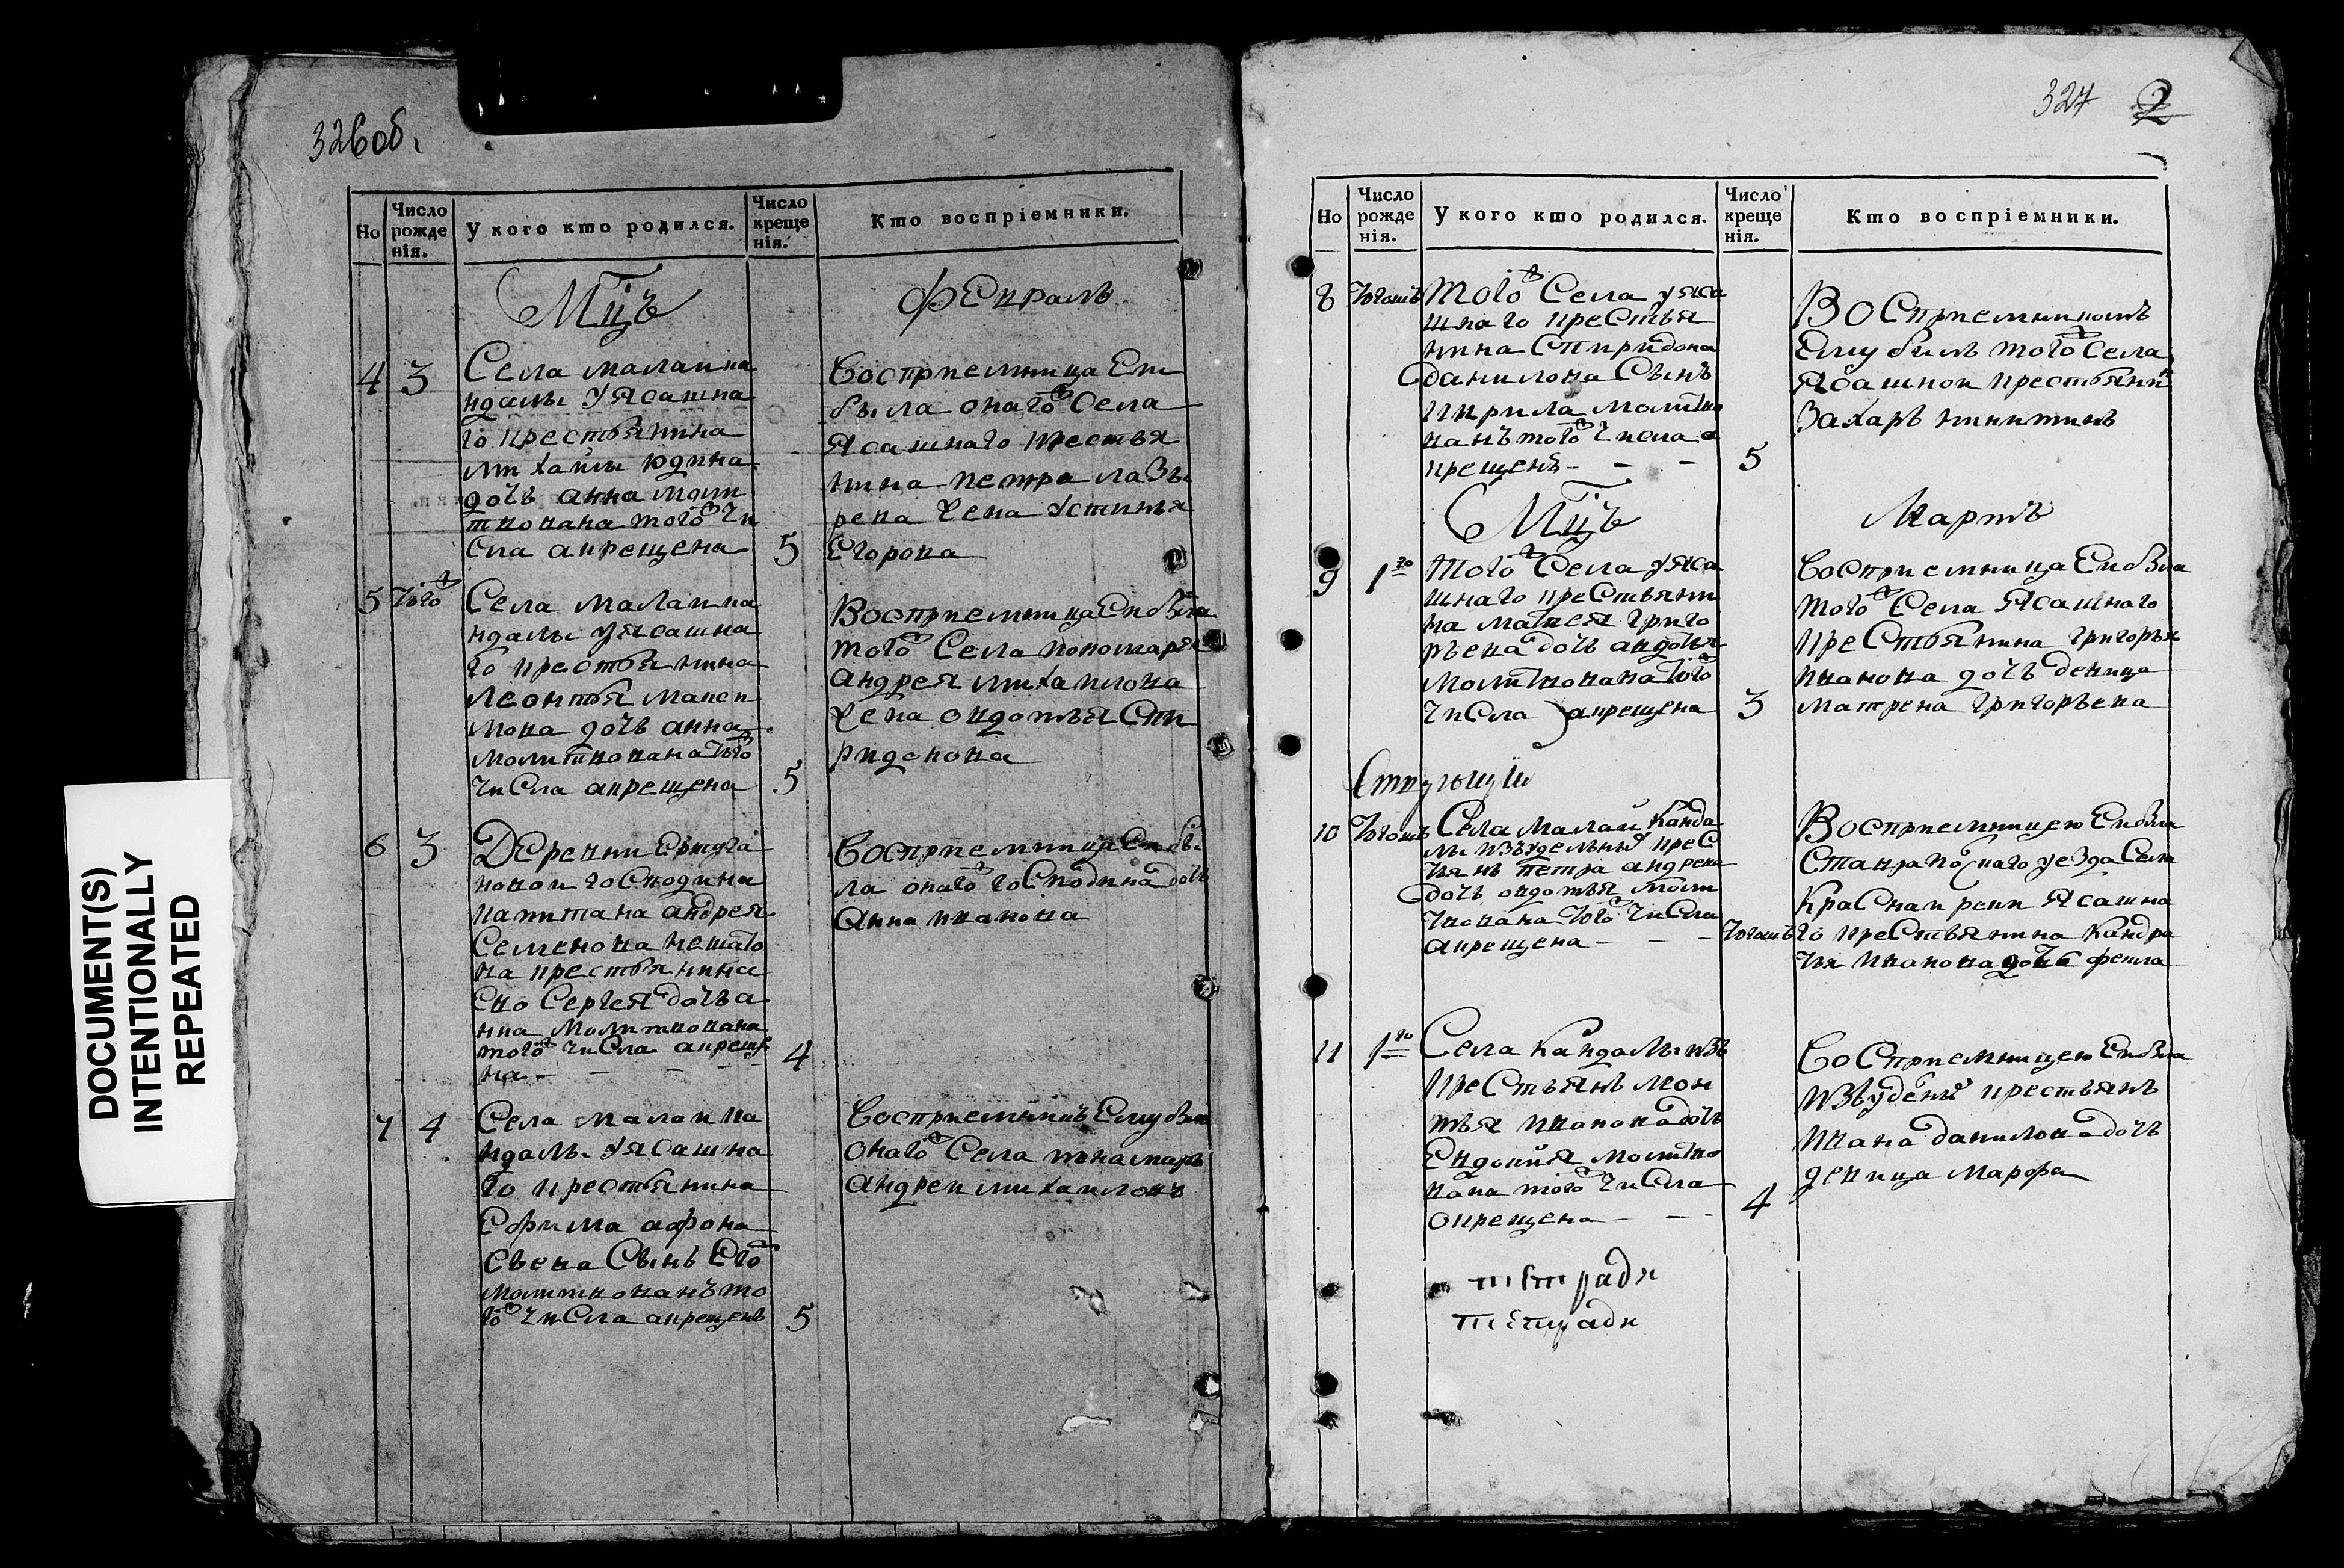 326 об.
Но
Число рожде нія.
У кого кто родился.
Число креще нія.
Кто воспріемники.
Мцъ
Февраль
4
3
Села малаи ка
ндалы уясашна
го крестьянина
михаилы юдина
дочь анна моли
твована того чи
сла акрещена
5
Восприемница Еи
была онаго села
Ясашнаго крестья
нина петра лаВъ
рева жена устинья
Егорова
5
того
Села малаи ка
ндалы уясашна
го крестьянина
леонтья макси
мова дочь анна
молитвована того
числа акрещена
5
Восприемница Еи бЫла
того Села пономаря
андрея михаилова
жена овдотья Спи
ридонова
6
3
Деревни
новои господина
капитана андрея
Семенова
крестьянина
Ево Сергея дочь а
нна молитвована
того числа акреще
на
4
Восприемница Еи бы
ла онаго господина дочь
анна иванова
7
4
Села малаи ка
ндалы уясашна
го крестьянина
Ефима афона
сьева Сынъ Его
молитвованъ то
го числа акрещенъ
5
Восприемникъ Ему был
онаго Села понамарь
андреи михаиловъ
DOCUMENT(S)
INTENTIONALLY
REPEATED
327 2
Но
Число рожде нія.
У кого кто родился.
Число креще нія.
Кто воспріемники.
8
тогожъ
того Села уяса
шнаго крестья
нина Спиридона
данилова Сынъ
Кирила молитво
ванъ того числа а
крещенъ
5
ВОСприемникомъ
Ему былъ того Села
Ясашнои крестьяни
Захаръ никитинъ
Мцъ
Мартъ
9
1го
того Села уяса
шнаго крестьяни
на матвея григо
рьева дочь авдотья
молитвована того
числа акрещена
3
Восприемница Еи была
того Села Ясашнаго
крестьянина григорья
иванова дочь девица
матрена григорьева
10
тогожъ
Села малаи канда
лы изъудельныхъ крес
тьянъ петра андреева
дочь овдотья моли
твована того числа
акрещена
тогожъ
Восприемницею Еи была
Ставрапольскаго уезда Села
Краснаи реки Ясашна
го крестьянина кандра
тья иванова дочь фекла
11
1го
Села кандалы изъ
крестьянъ леон
тья иванова дочь
Евдокия молитво
вана того числа
окрещена
4
Восприемницею Еи была
изъуделныхъ крестьянъ
ивана данилова дочь
девица марфа
тетради
тетради